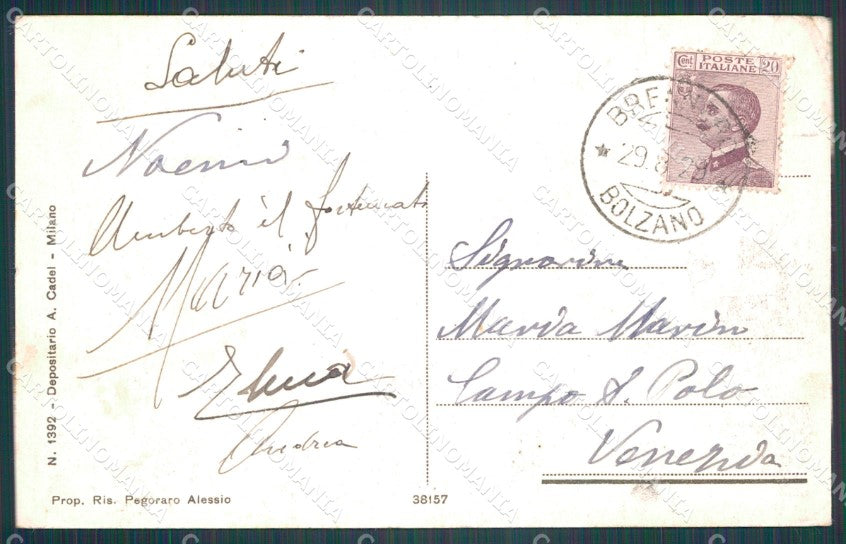 Saluti
Noemi
Umberto il fortunato
Maria
Elvira
Andrea
N. 1392 - Depositario A. Cadel - Milano
Prop. Ris. Pegoraro Alessio
38157
Cent. POSTE ITALIANE 20
BRENNERO
29.8.29
BOLZANO
Signorina
Maria Marin
Campo S. Polo
Venezia
CARTOLINOMANIA